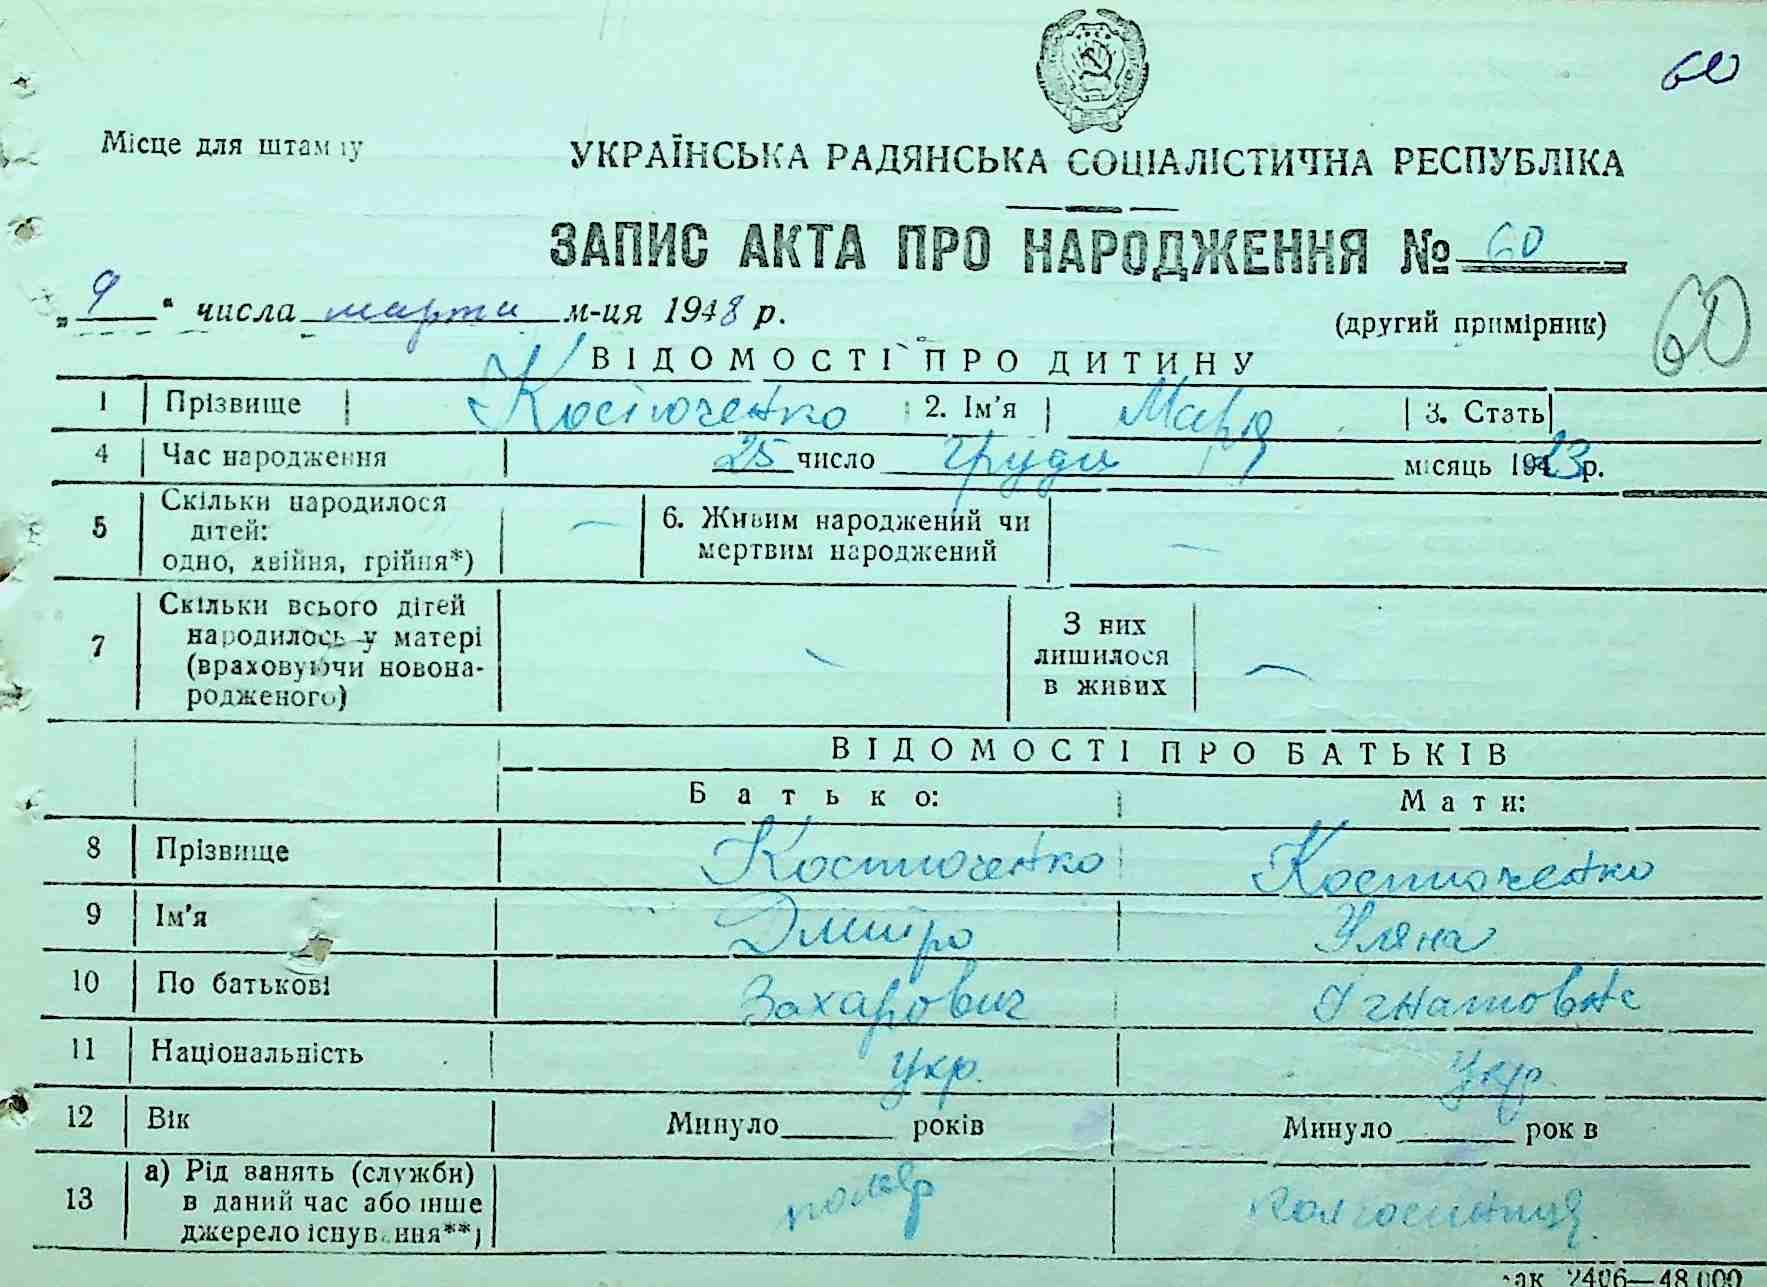 60
Місце для штампу
УКРАЇНСЬКА РАДЯНСЬКА СОЦІАЛІСТИЧНА РЕСПУБЛІКА
ЗАПИС АКТА ПРО НАРОДЖЕННЯ № 60
„ 9 “ числа марта м-ця 1948 р.
(другий примірник)
60
ВІДОМОСТІ ПРО ДИТИНУ
1 Прізвище Костюченко 2. Ім'я Марія 3. Стать
4 Час народження 25 число грудня місяць 1923 р.
5 Скільки народилося
дітей:
одно, двійня, трійня*) —
6. Живим народжений чи
мертвим народжений —
7 Скільки всього дітей
народилось у матері
(враховуючи новона-
родженого) —
З них
лишилося
в живих —
ВІДОМОСТІ ПРО БАТЬКІВ
Батько: Мати:
8 Прізвище Костюченко Костюченко
9 Ім'я Дмитро Уляна
10 По батькові Захарович Ігнатовна
11 Національність укр. укр.
12 Вік Минуло____ років Минуло____ рок в
13 а) Рід занять (служби)
в даний час або інше
джерело існування**)
помер колгоспниця
Зак. 2406—48.000